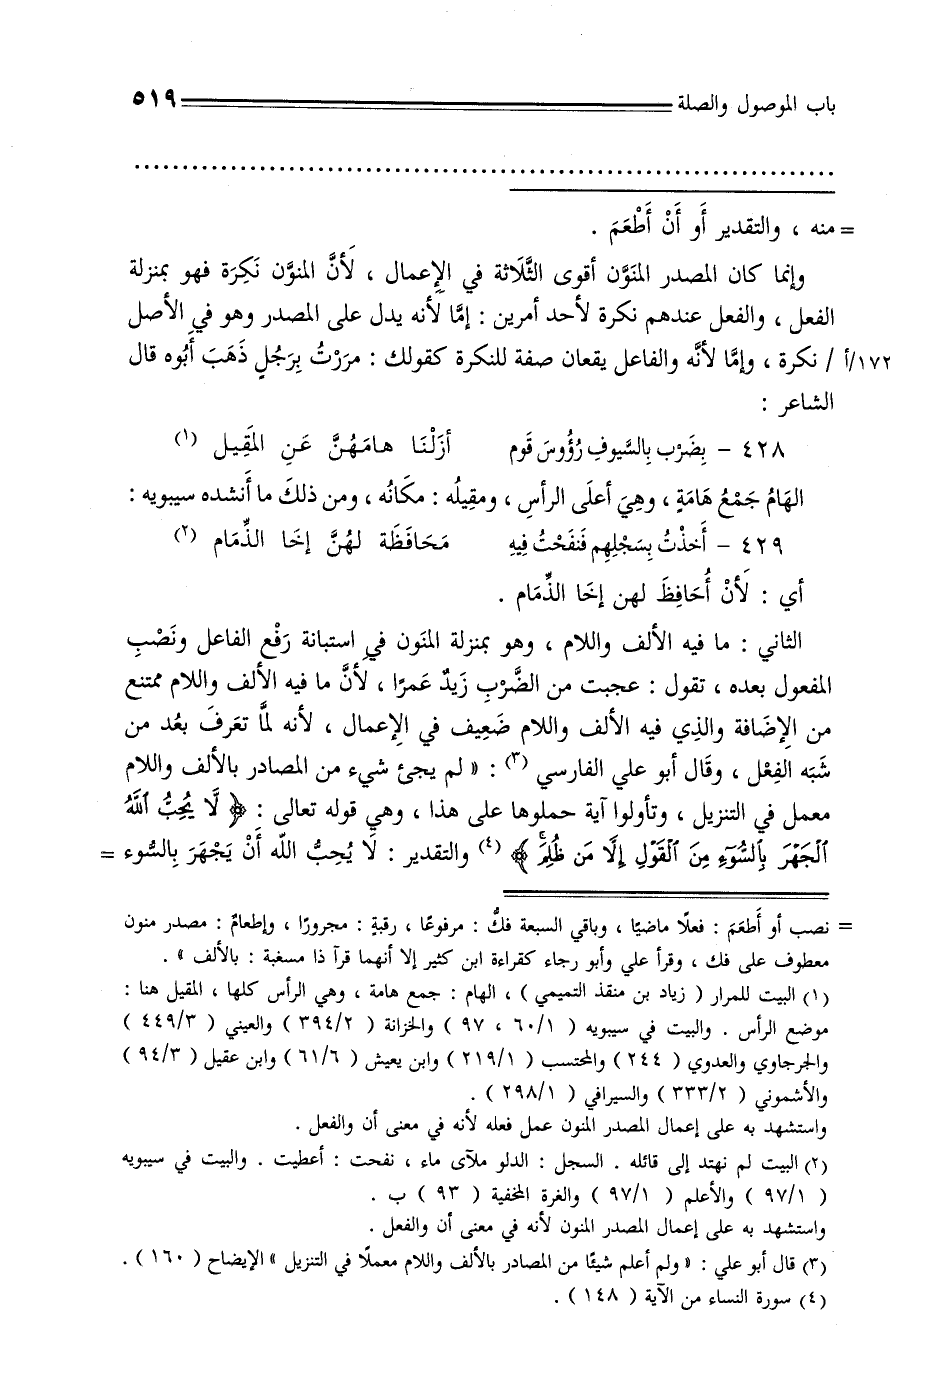 باب الموصول والصلة ٥١٩
= منه ، والتقدير أَو أَنْ أَطْعَمَ .
وإنما كان المصدر المنَوَّن أقوى الثَّلَاثة في الإعمال ، لأَنَّ المنوَّن نَكِرَة فهو بمنزلة
الفعل ، والفعل عندهم نكرة لأحد أمرين : إمَّا لأنه يدل على المصدر وهو في الأصل
١٧٢/أ / نكرة ، وإمَّا لأنَّه والفاعل يقعان صفة للنكرة كقولك : مرَرْتُ بِرَجُلٍ ذَهَبَ أَبُوه قال
الشاعر :
٤٢٨ - بِضَرْبٍ بِالسُّيوفِ رُؤُوسَ قَوم أزَلْنَا هامَهُنَّ عَنِ المَقِيل (١)
الهَامُ جَمْعُ هَامَةٍ ، وهِيَ أعلَى الرأسِ ، ومقِيلُه : مكَانُه ، ومن ذلكَ ما أَنشده سيبويه :
٤٢٩ - أَخذْتُ بِسَجْلِهِم فَنَفَحْتُ فِيهِ مَحَافَظَة لهُنَّ إخَا الذِّمَام (٢)
أي : لَأَنْ أُحَافِظَ لهن إخَا الذِّمَام .
الثاني : ما فيه الألف واللام ، وهو بمنزلة المنَون في استبانة رَفْع الفاعل ونَصْبِ
المفعول بعده ، تقول : عجبت من الضَّرْبِ زَيدٌ عَمرًا ، لأَنَّ ما فيه الألف واللام ممتنع
من الإضَافة والذِي فيه الألف واللام ضَعِيف في الإعمال ، لأنه لمَّا تعَرفَ بعُد من
شَبَه الفِعْل ، وقَال أبو علي الفارسي (٣) : « لم يجئ شيء من المصادر بالألف واللام
معمل في التنزيل ، وتأولوا آية حملوها على هذا ، وهي قوله تعالى : ﴿ لَّا يُحِبُّ ٱللَّهُ
ٱلْجَهْرَ بِٱلسُّوٓءِ مِنَ ٱلْقَوْلِ إِلَّا مَن ظُلِمَ ﴾ (٤) والتقدير : لَا يُحِبُّ اللّه أَنْ يَجْهَرَ بِالسُّوء =
= نصب أو أَطعَمَ : فعلًا ماضيًا ، وباقي السبعة فكُّ : مرفوعًا ، رقبةٍ : مجرورًا ، وإطعامٌ : مصدر منون
معطوف على فك ، وقرأ علي وأبو رجاء كقراءة ابن كثير إلا أنهما قرآ ذا مسغبة : بالألف » .
(١) البيت للمرار ( زياد بن منقذ التميمي ) ، الهام : جمع هامة ، وهي الرأس كلها ، المقيل هنا :
موضع الرأس . والبيت في سيبويه ( ٦٠/١ ، ٩٧ ) والخزانة ( ٣٩٤/٢ ) والعيني ( ٤٤٩/٣ )
والجرجاوي والعدوي ( ٢٤٤ ) والمحتسب ( ٢١٩/١ ) وابن يعيش ( ٦١/٦ ) وابن عقيل ( ٩٤/٣ )
والأشموني ( ٣٣٣/٢ ) والسيرافي ( ٢٩٨/١ ) .
واستشهد به على إعمال المصدر المنون عمل فعله لأنه في معنى أن والفعل .
(٢) البيت لم نهتد إلى قائله . السجل : الدلو ملآى ماء ، نفحت : أعطيت . والبيت في سيبويه
( ٩٧/١ ) والأعلم ( ٩٧/١ ) والغرة المخفية ( ٩٣ ) ب .
واستشهد به على إعمال المصدر المنون لأنه في معنى أن والفعل .
(٣) قال أبو علي : « ولم أعلم شيئًا من المصادر بالألف واللام معملًا في التنزيل » الإيضاح ( ١٦٠ ) .
(٤) سورة النساء من الآية ( ١٤٨ ) .